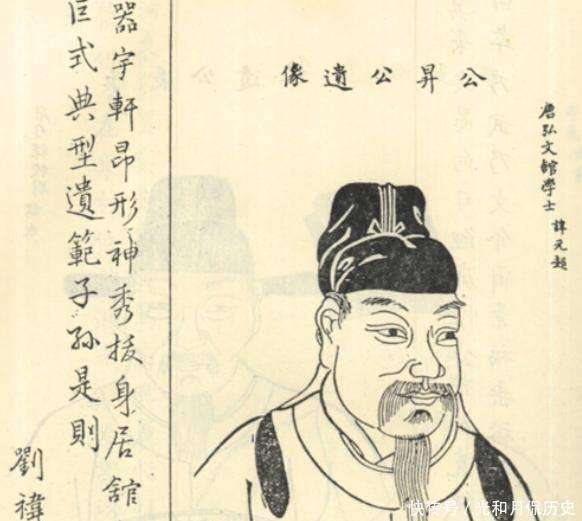 唐弘文館學士 諱元超
公昇公遺像
器宇軒昂形神秀拔身居館
式典型遺範子孫是則
劉禕
快传号 / 光和月侃历史